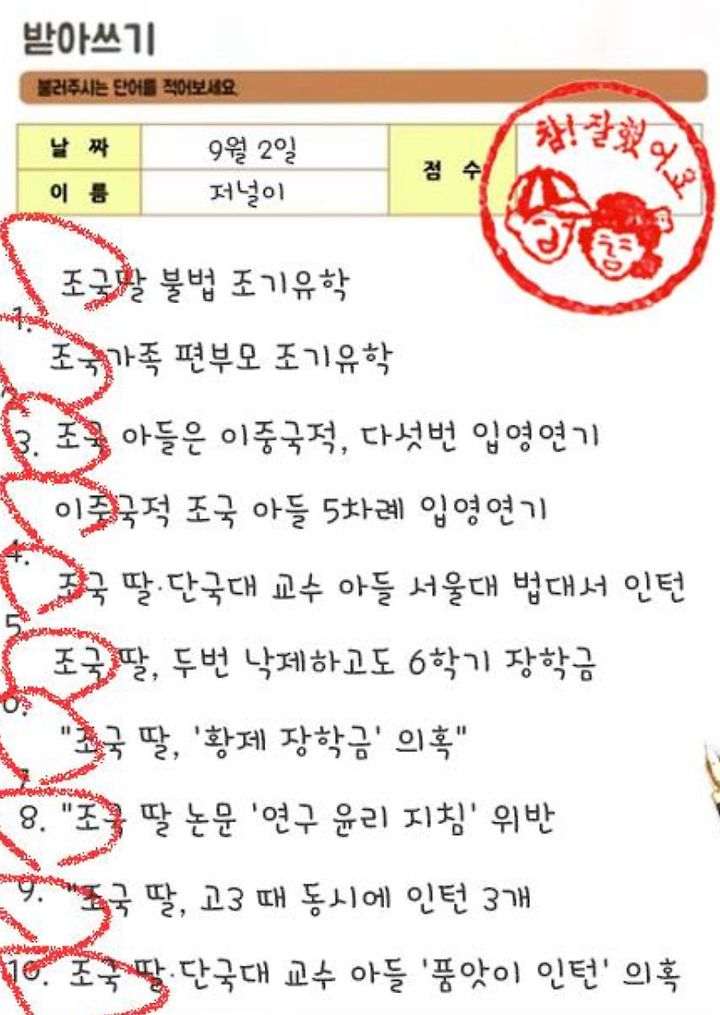 받아쓰기
불러주시는 단어를 적어보세요.
날 짜 9월 2일
점 수
이 름 저널이
참! 잘했어요
1. 조국딸 불법 조기유학
2. 조국가족 편부모 조기유학
3. 조국 아들은 이중국적, 다섯번 입영연기
4. 이중국적 조국 아들 5차례 입영연기
5. 조국 딸·단국대 교수 아들 서울대 법대서 인턴
6. 조국 딸, 두번 낙제하고도 6학기 장학금
7. "조국 딸, '황제 장학금' 의혹"
8. "조국 딸 논문 '연구 윤리 지침' 위반
9. "조국 딸, 고3 때 동시에 인턴 3개
10. 조국 딸·단국대 교수 아들 '품앗이 인턴' 의혹